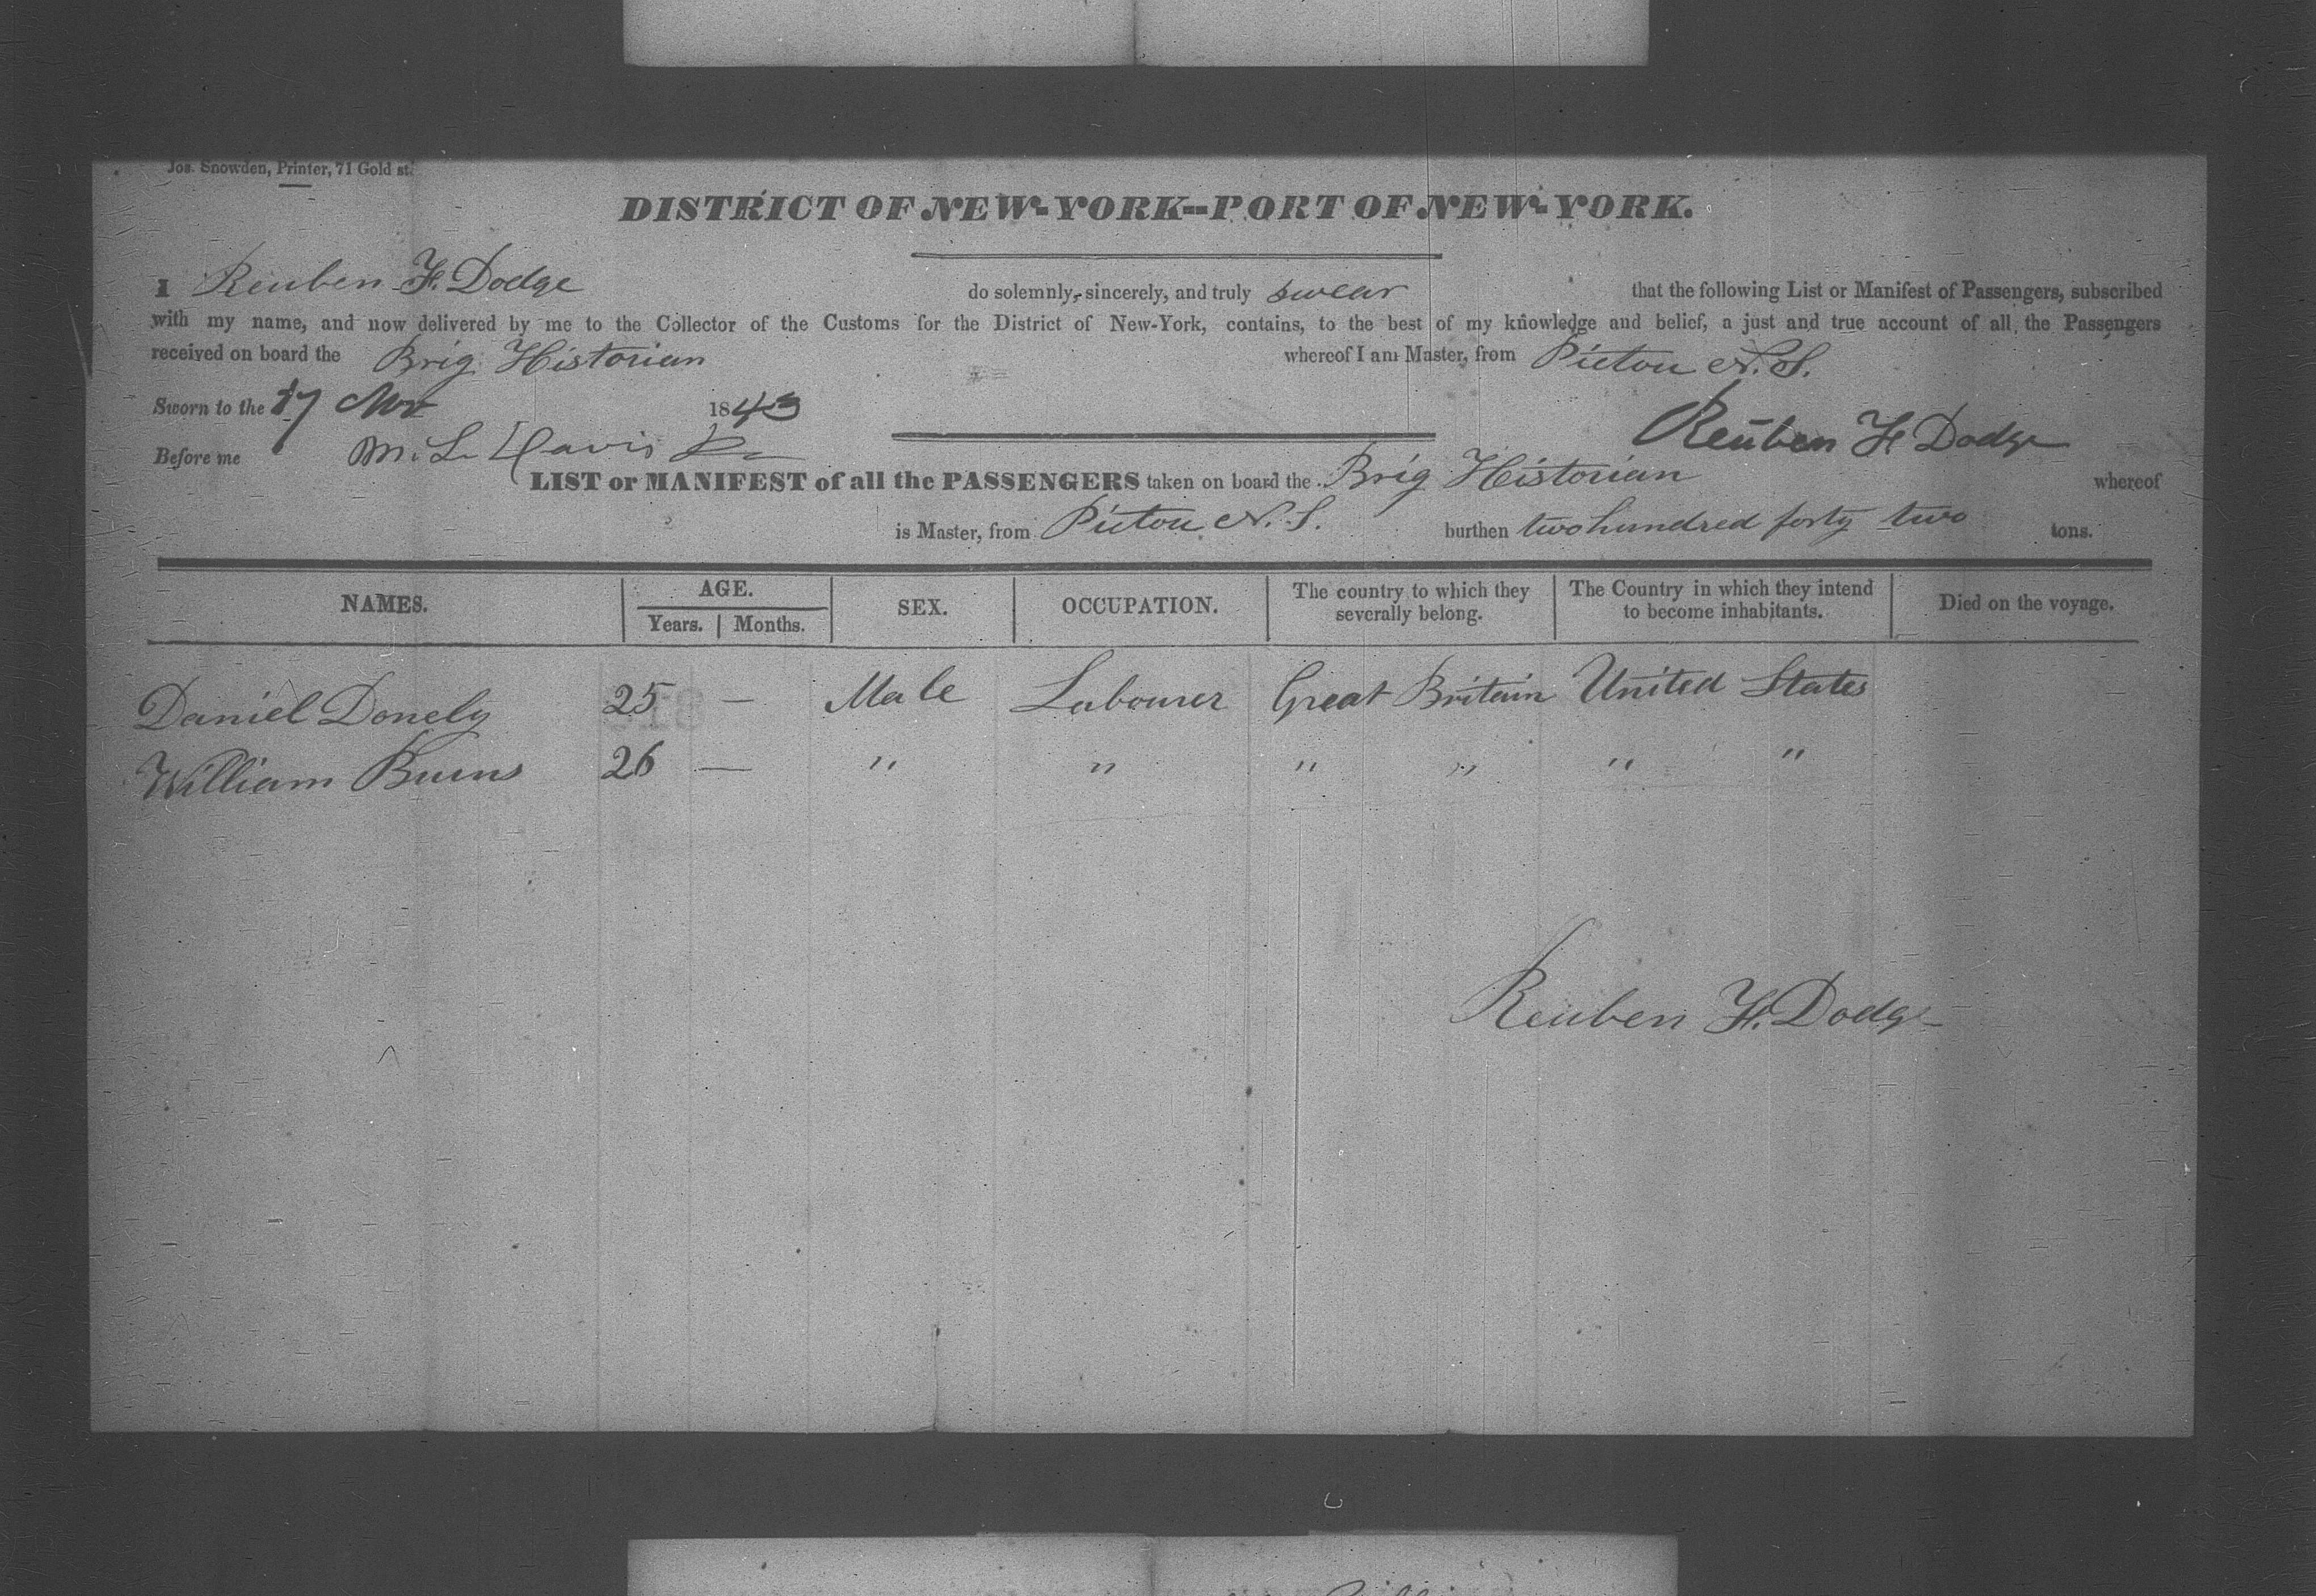 Jos. Snowden, Printer, 71 Gold st.
DISTRICT OF NEW-YORK--PORT OF NEW-YORK.
I Reuben H. Dodge do solemnly, sincerely, and truly swear that the following List or Manifest of Passengers, subscribed
with my name, and now delivered by me to the Collector of the Customs for the District of New-York, contains, to the best of my knowledge and belief, a just and true account of all the Passengers
received on board the Brig Historian whereof I am Master, from Pictou N.S.
Sworn to the 17 Nov 1843
Reuben H Dodge
Before me M. L. Davis
LIST or MANIFEST of all the PASSENGERS taken on board the Brig Historian whereof
is Master, from Pictou N. S. burthen two hundred forty two tons.
NAMES. AGE. Years. Months. SEX. OCCUPATION. The country to which they severally belong. The Country in which they intend to become inhabitants. Died on the voyage.
Daniel Donely 25 — Male Labourer Great Britain United States
William Burns 26 — " " " " " "
Reuben H. Dodge